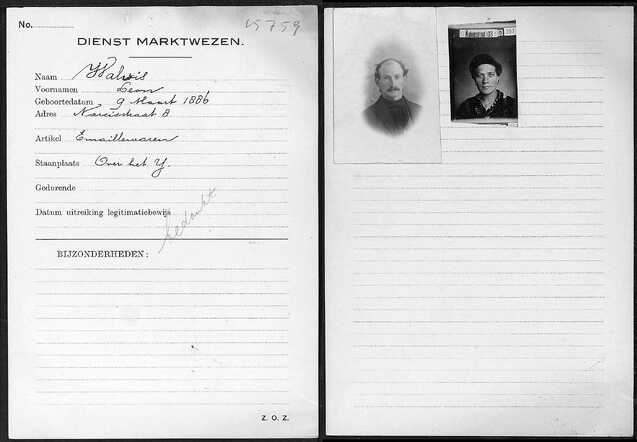 No.
45759
DIENST MARKTWEZEN.
Naam Walvis
Voornamen Leon
Geboortedatum 9 Maart 1886
Adres Narcisstraat 8
Artikel Emaillewaren
Staanplaats Over het Y.
Gedurende
Datum uitreiking legitimatiebewijs
bedankt
BIJZONDERHEDEN:
Z. O. Z.